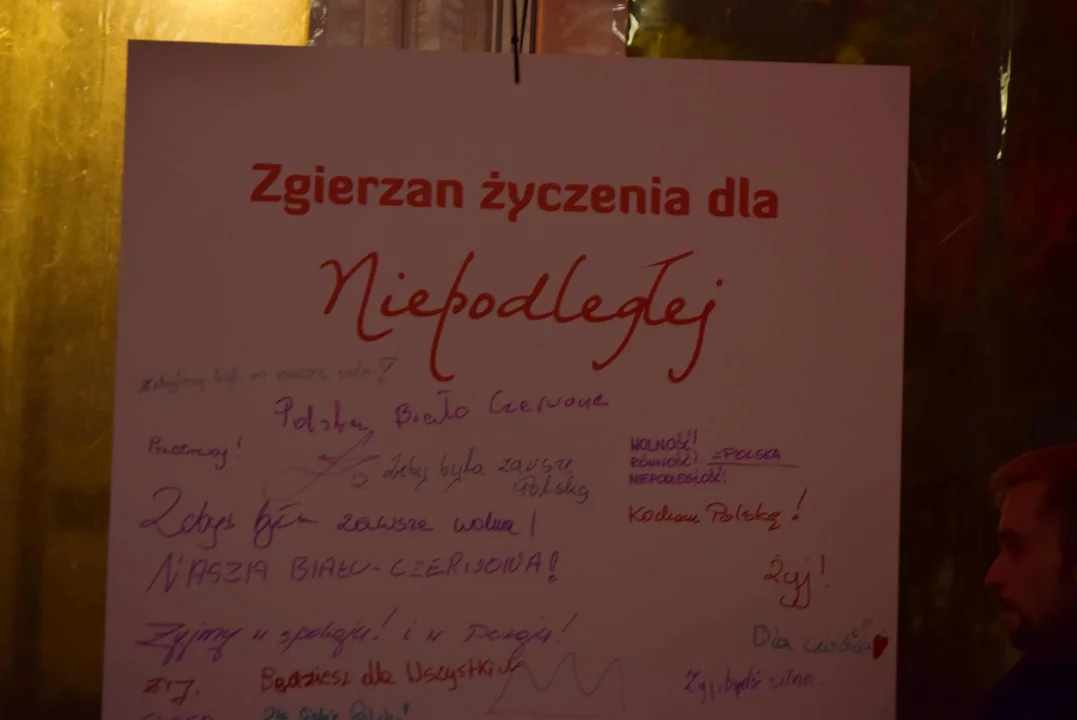 Zgierzan życzenia dla
Niepodległej
być zawsze
Polska Biało Czerwona
Przetrwaj!
WOLNOŚĆ!
RÓWNOŚĆ! =POLSKA
NIEPODLEGŁOŚĆ!
żeby była zawsze
Polską
Kocham Polskę!
Żebyś była zawsze wolna!
NASZA BIAŁO-CZERWONA!
Żyj!
Żyjmy w spokoju! i w
Dla ciebie
ŻYJ.
Będziesz dla Wszystkich
Żyj, bądź silna.